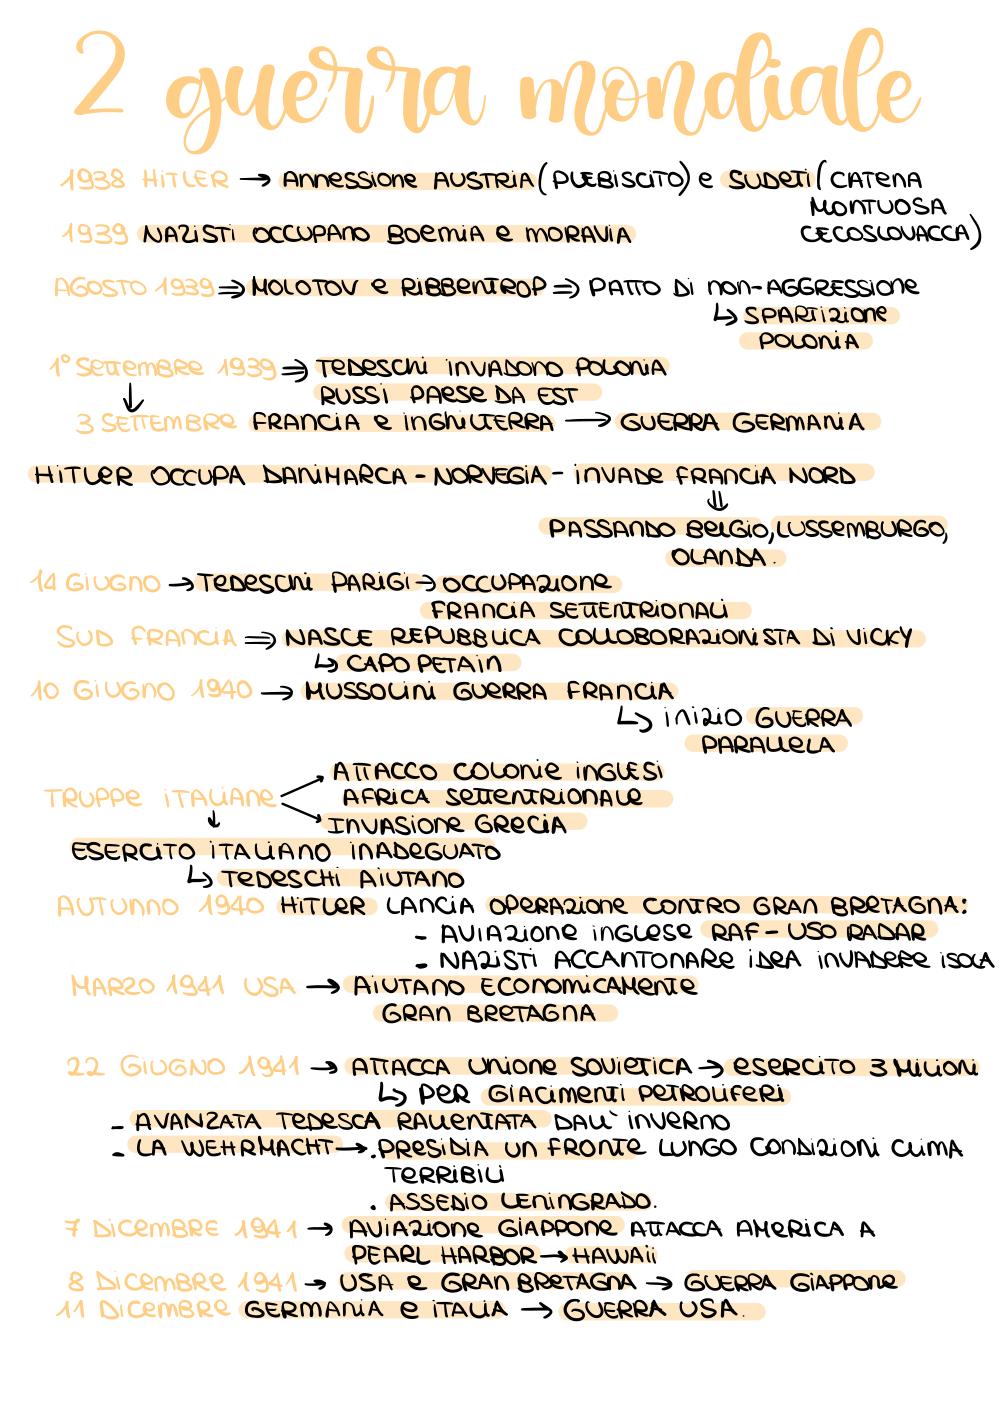 2 guerra mondiale
1938 HITLER → ANNESSIONE AUSTRIA (PLEBISCITO) e SUDETI (CATENA
MONTUOSA
1939 NAZISTI OCCUPANO BOEMIA e MORAVIA CECOSLOVACCA)
AGOSTO 1939 ⇒ MOLOTOV e RIBBENTROP ⇒ PATTO DI NON-AGGRESSIONE
↳ SPARTIZIONE
POLONIA
1° SETTEMBRE 1939 ⇒ TEDESCHI INVADONO POLONIA
↓ RUSSI PAESE DA EST
3 SETTEMBRE FRANCIA e INGHILTERRA → GUERRA GERMANIA
HITLER OCCUPA DANIMARCA - NORVEGIA - INVADE FRANCIA NORD
⇓
PASSANDO BELGIO, LUSSEMBURGO,
OLANDA.
14 GIUGNO → TEDESCHI PARIGI → OCCUPAZIONE
FRANCIA SETTENTRIONALI
SUD FRANCIA ⇒ NASCE REPUBBLICA COLLOBORAZIONISTA DI VICKY
↳ CAPO PETAIN
10 GIUGNO 1940 → MUSSOLINI GUERRA FRANCIA
↳ INIZIO GUERRA
PARALLELA
ATTACCO COLONIE INGLESI
TRUPPE ITALIANE AFRICA SETTENTRIONALE
↓ INVASIONE GRECIA
ESERCITO ITALIANO INADEGUATO
↳ TEDESCHI AIUTANO
AUTUNNO 1940 HITLER LANCIA OPERAZIONE CONTRO GRAN BRETAGNA:
- AVIAZIONE INGLESE RAF - USO RADAR
- NAZISTI ACCANTONARE IDEA INVADERE ISOLA
MARZO 1941 USA → AIUTANO ECONOMICAMENTE
GRAN BRETAGNA
22 GIUGNO 1941 → ATTACCA UNIONE SOVIETICA → ESERCITO 3 MILIONI
↳ PER GIACIMENTI PETROLIFERI
- AVANZATA TEDESCA RALLENTATA DALL' INVERNO
- LA WEHRMACHT → . PRESIDIA UN FRONTE LUNGO CONDIZIONI CLIMA
TERRIBILI
. ASSEDIO LENINGRADO.
7 DICEMBRE 1941 → AVIAZIONE GIAPPONE ATTACCA AMERICA A
PEARL HARBOR → HAWAII
8 DICEMBRE 1941 → USA e GRAN BRETAGNA → GUERRA GIAPPONE
11 DICEMBRE GERMANIA e ITALIA → GUERRA USA.